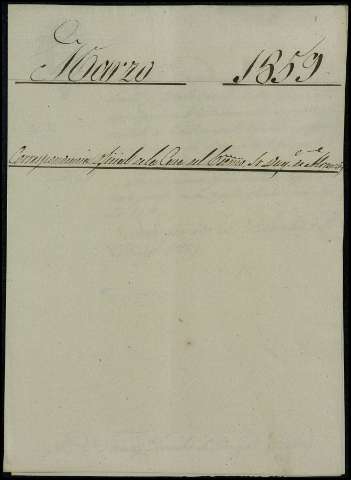 Marzo 1859
Correspondencia oficial de la Casa del Exmo Sr Duq.e de